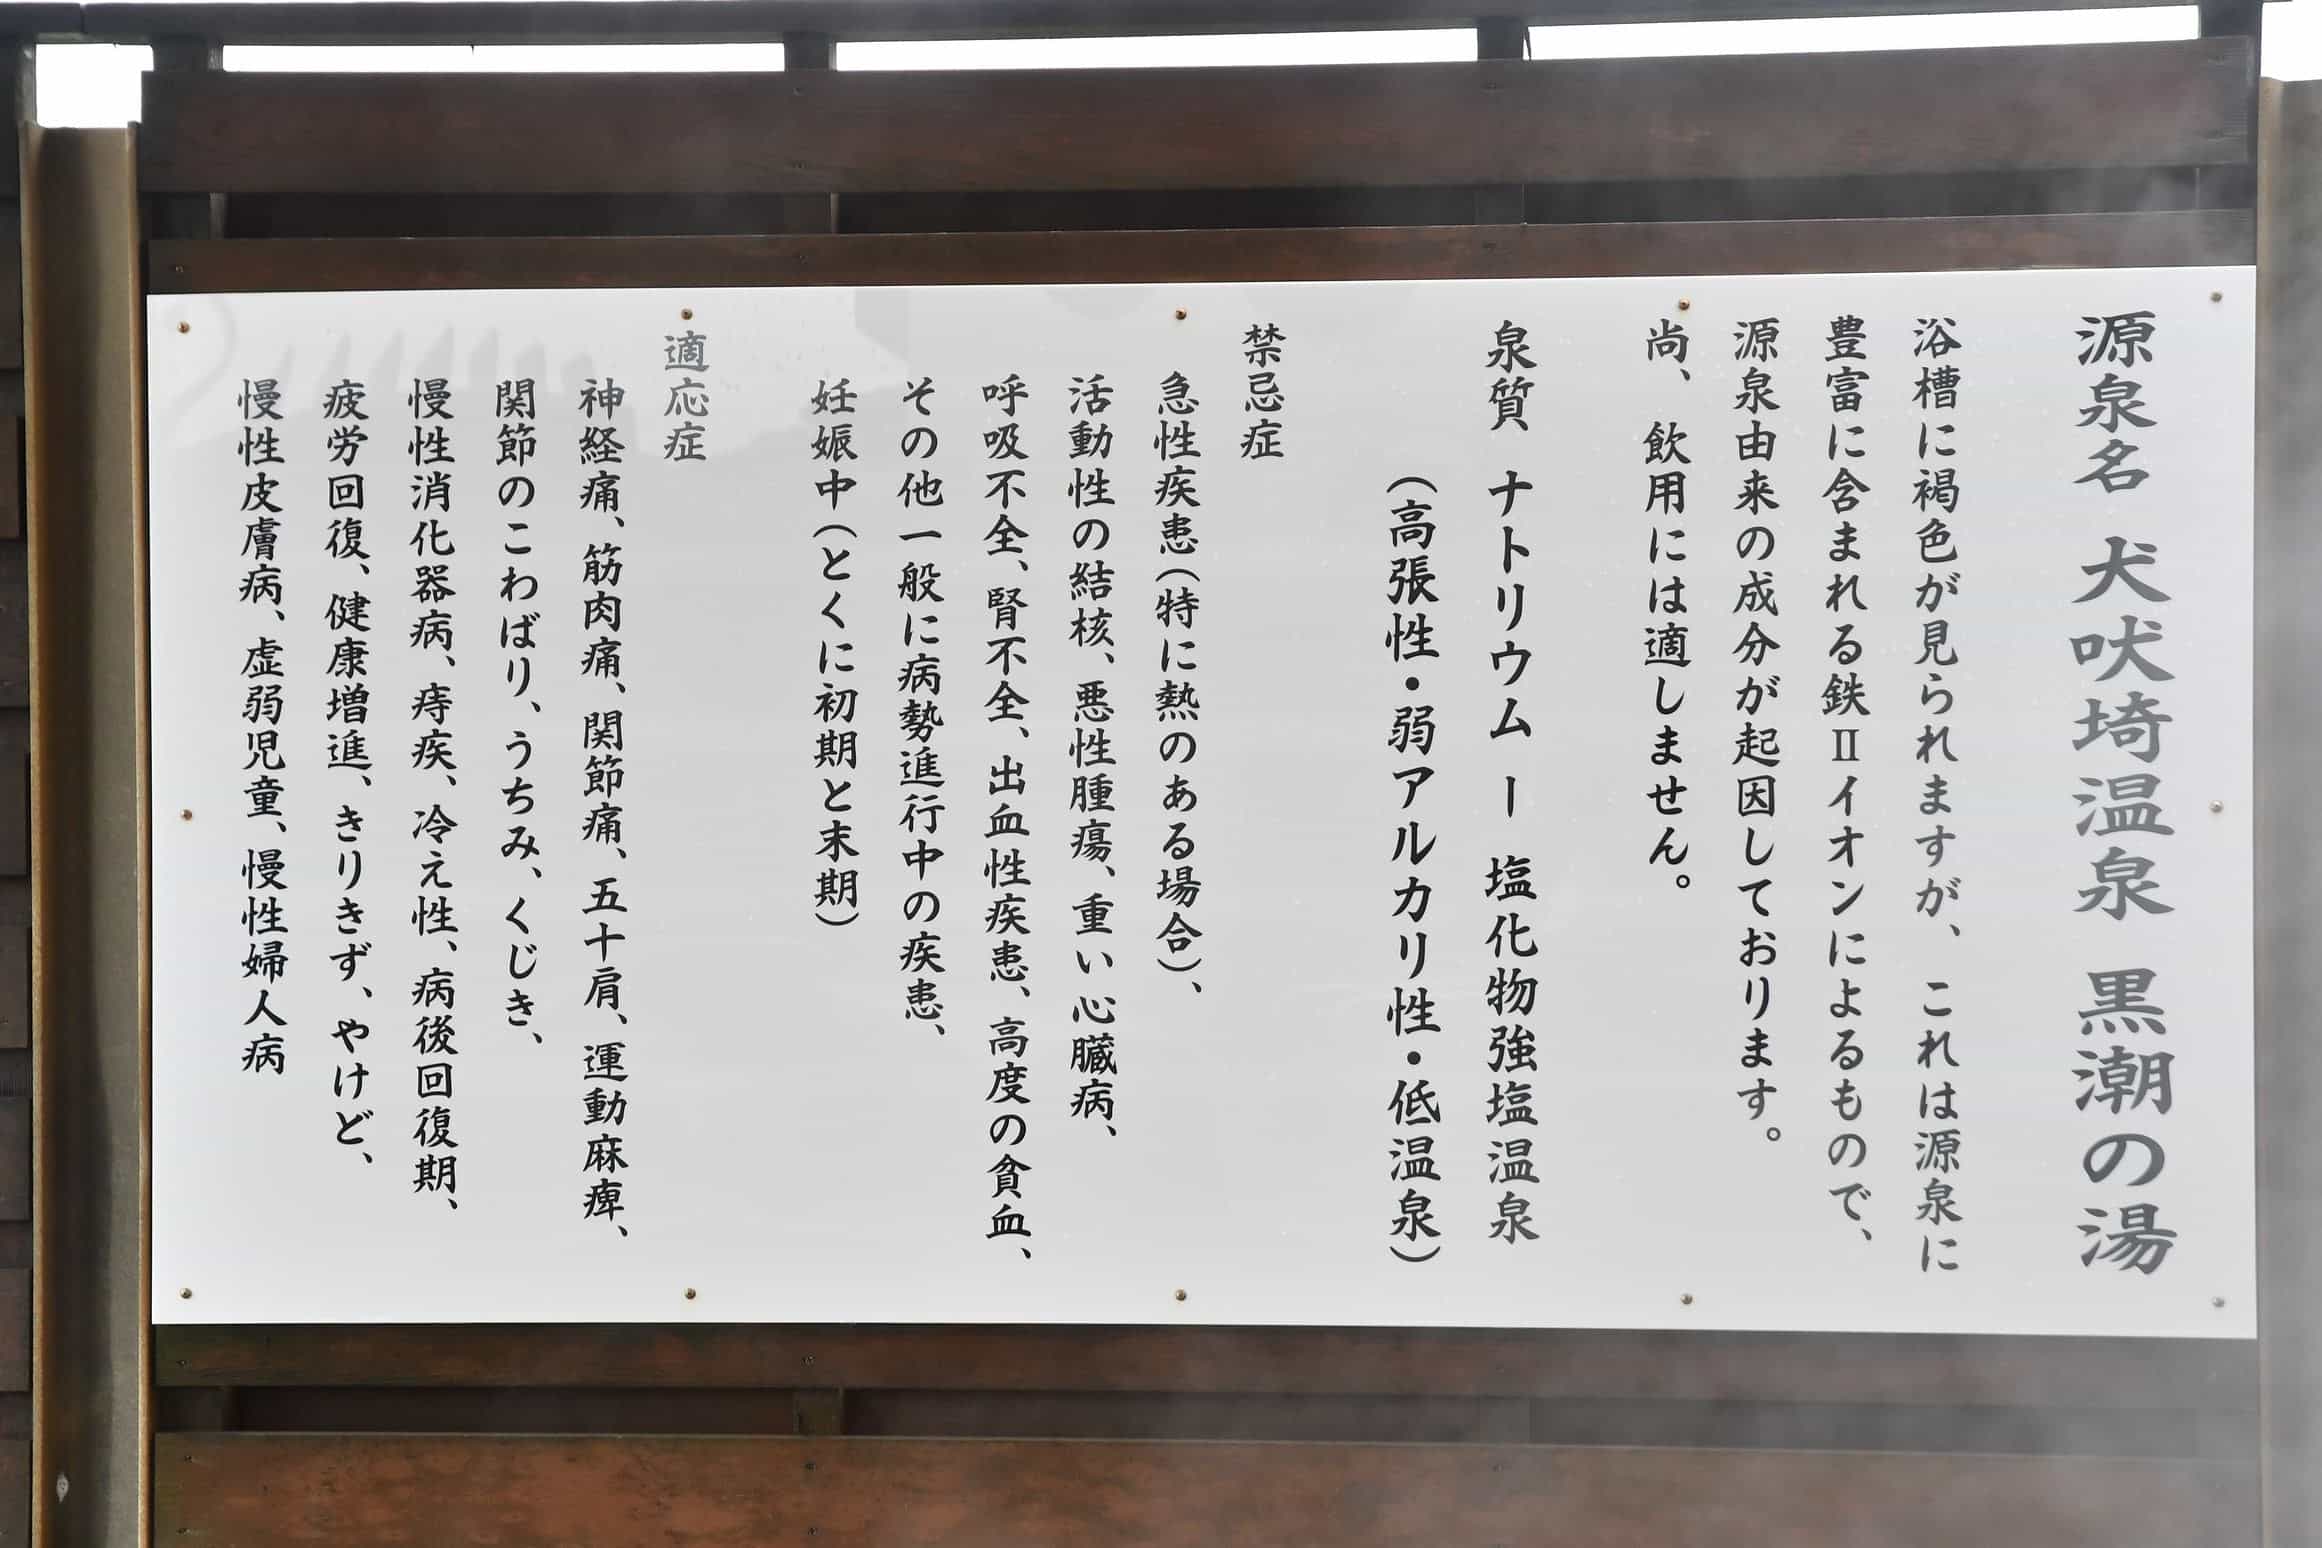 源泉名 犬吠埼温泉 黒潮の湯
浴槽に褐色が見られますが、これは源泉に
豊富に含まれる鉄Ⅱイオンによるもので、
源泉由来の成分が起因しております。
尚、飲用には適しません。
泉質 ナトリウム ー 塩化物強塩温泉
(高張性・弱アルカリ性・低温泉)
禁忌症
急性疾患(特に熱のある場合)、
活動性の結核、悪性腫瘍、重い心臓病、
呼吸不全、腎不全、出血性疾患、高度の貧血、
その他一般に病勢進行中の疾患、
妊娠中(とくに初期と末期)
適応症
神経痛、筋肉痛、関節痛、五十肩、運動麻痺、
関節のこわばり、うちみ、くじき、
慢性消化器病、痔疾、冷え性、病後回復期、
疲労回復、健康増進、きりきず、やけど、
慢性皮膚病、虚弱児童、慢性婦人病